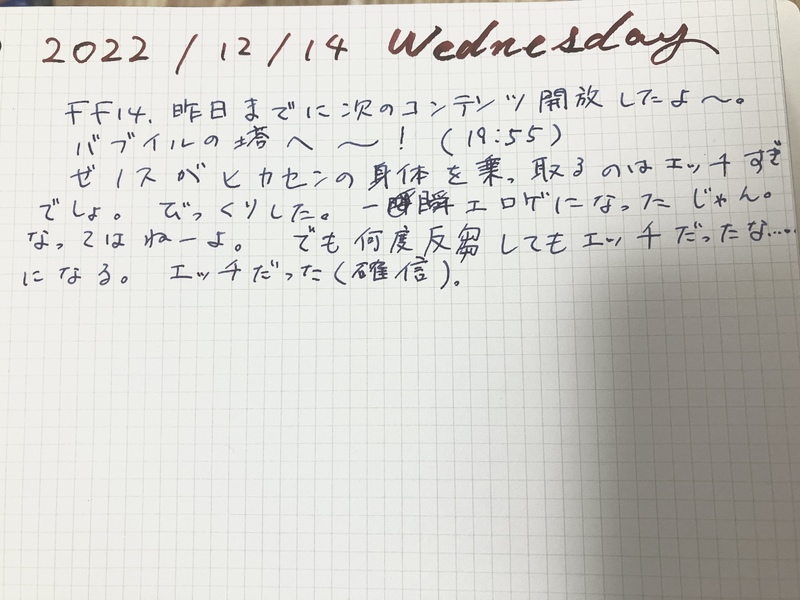 2022/12/14 Wednesday
FF14. 昨日までに次のコンテンツ開放したよ〜。
バブイルの塔へ〜！(19:55)
ゼノスがヒカセンの身体を乗っ取るのはエッチすぎ
でしょ。びっくりした。一瞬エロゲになったじゃん。
なってはねーよ。でも何度反芻してもエッチだったな……
になる。エッチだった(確信)。